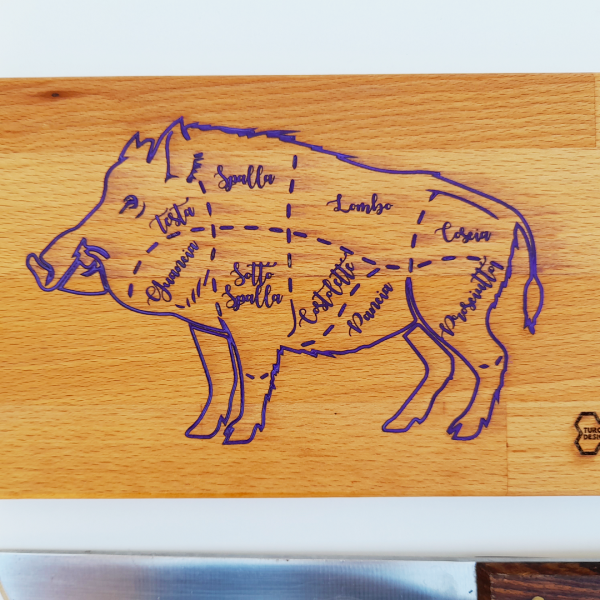 Spalla
Testa
Lombo
Coscia
Guancia
Sotto
Spalla
Costolette
Pancia
Prosciutto
TURC
DESIG